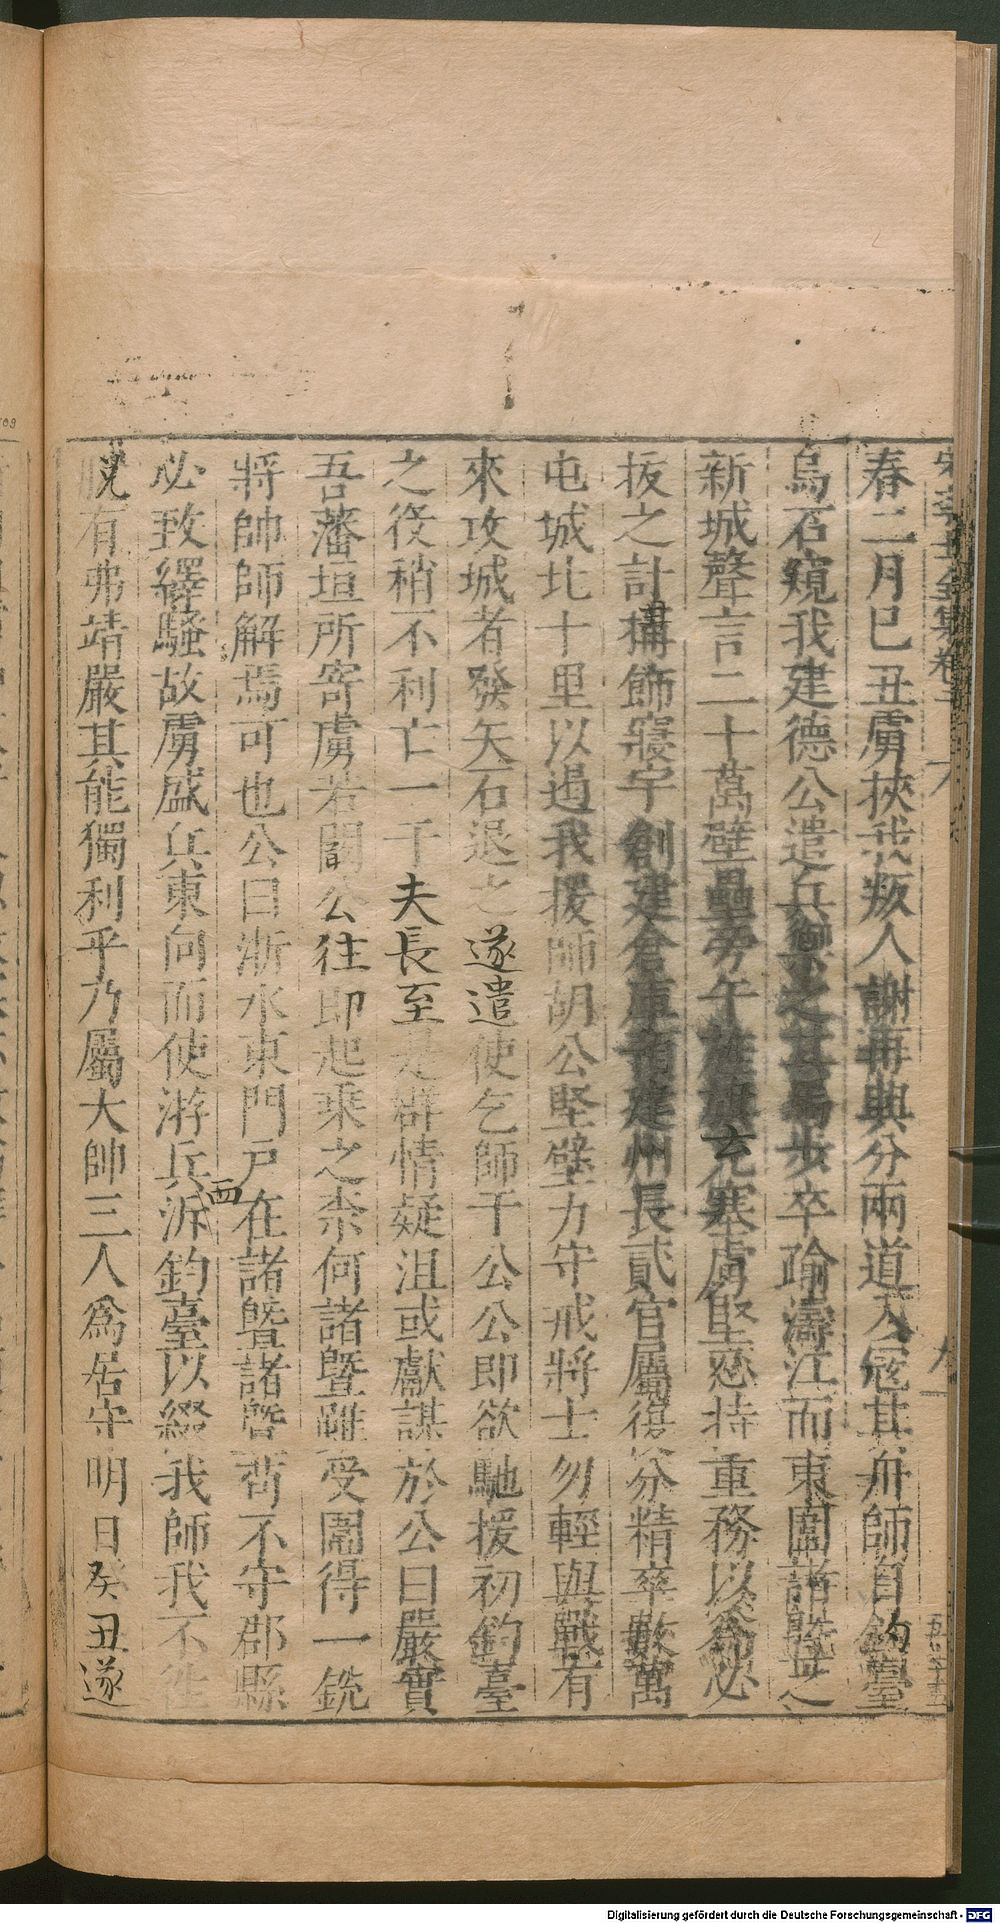 春二月己丑虜挾我叛人謝再興分兩道入寇其舟師自釣臺
烏石窺我建德公遣兵禦之其馬步卒踰濤江而東圍諸曁之
新城聲言二十萬壁壘旁午旌旗充塞虜堅忍持重務以爲必
拔之計構飾寢宇創建倉庫預建州長貳官屬復分精卒數萬
屯城北十里以遏我援師胡公堅壁力守戒將士勿輕與戰有
來攻城者發矢石退之遂遣使乞師于公公即欲馳援初釣臺
之役稍不利亡一千夫長至是群情疑沮或獻謀於公曰嚴實
吾藩垣所寄虜若闞公往即起乘之柰何諸曁雖受圍得一銳
將帥師解焉可也公曰浙水東門戶在諸曁諸曁苟不守郡縣
必致繹騷故虜盛兵東向而使游兵泝釣臺以綴我師我不
脫有弗靖嚴其能獨利乎乃屬大帥三人爲居守明日癸丑遂
西
Digitalisierung gefördert durch die Deutsche Forschungsgemeinschaft - DFG